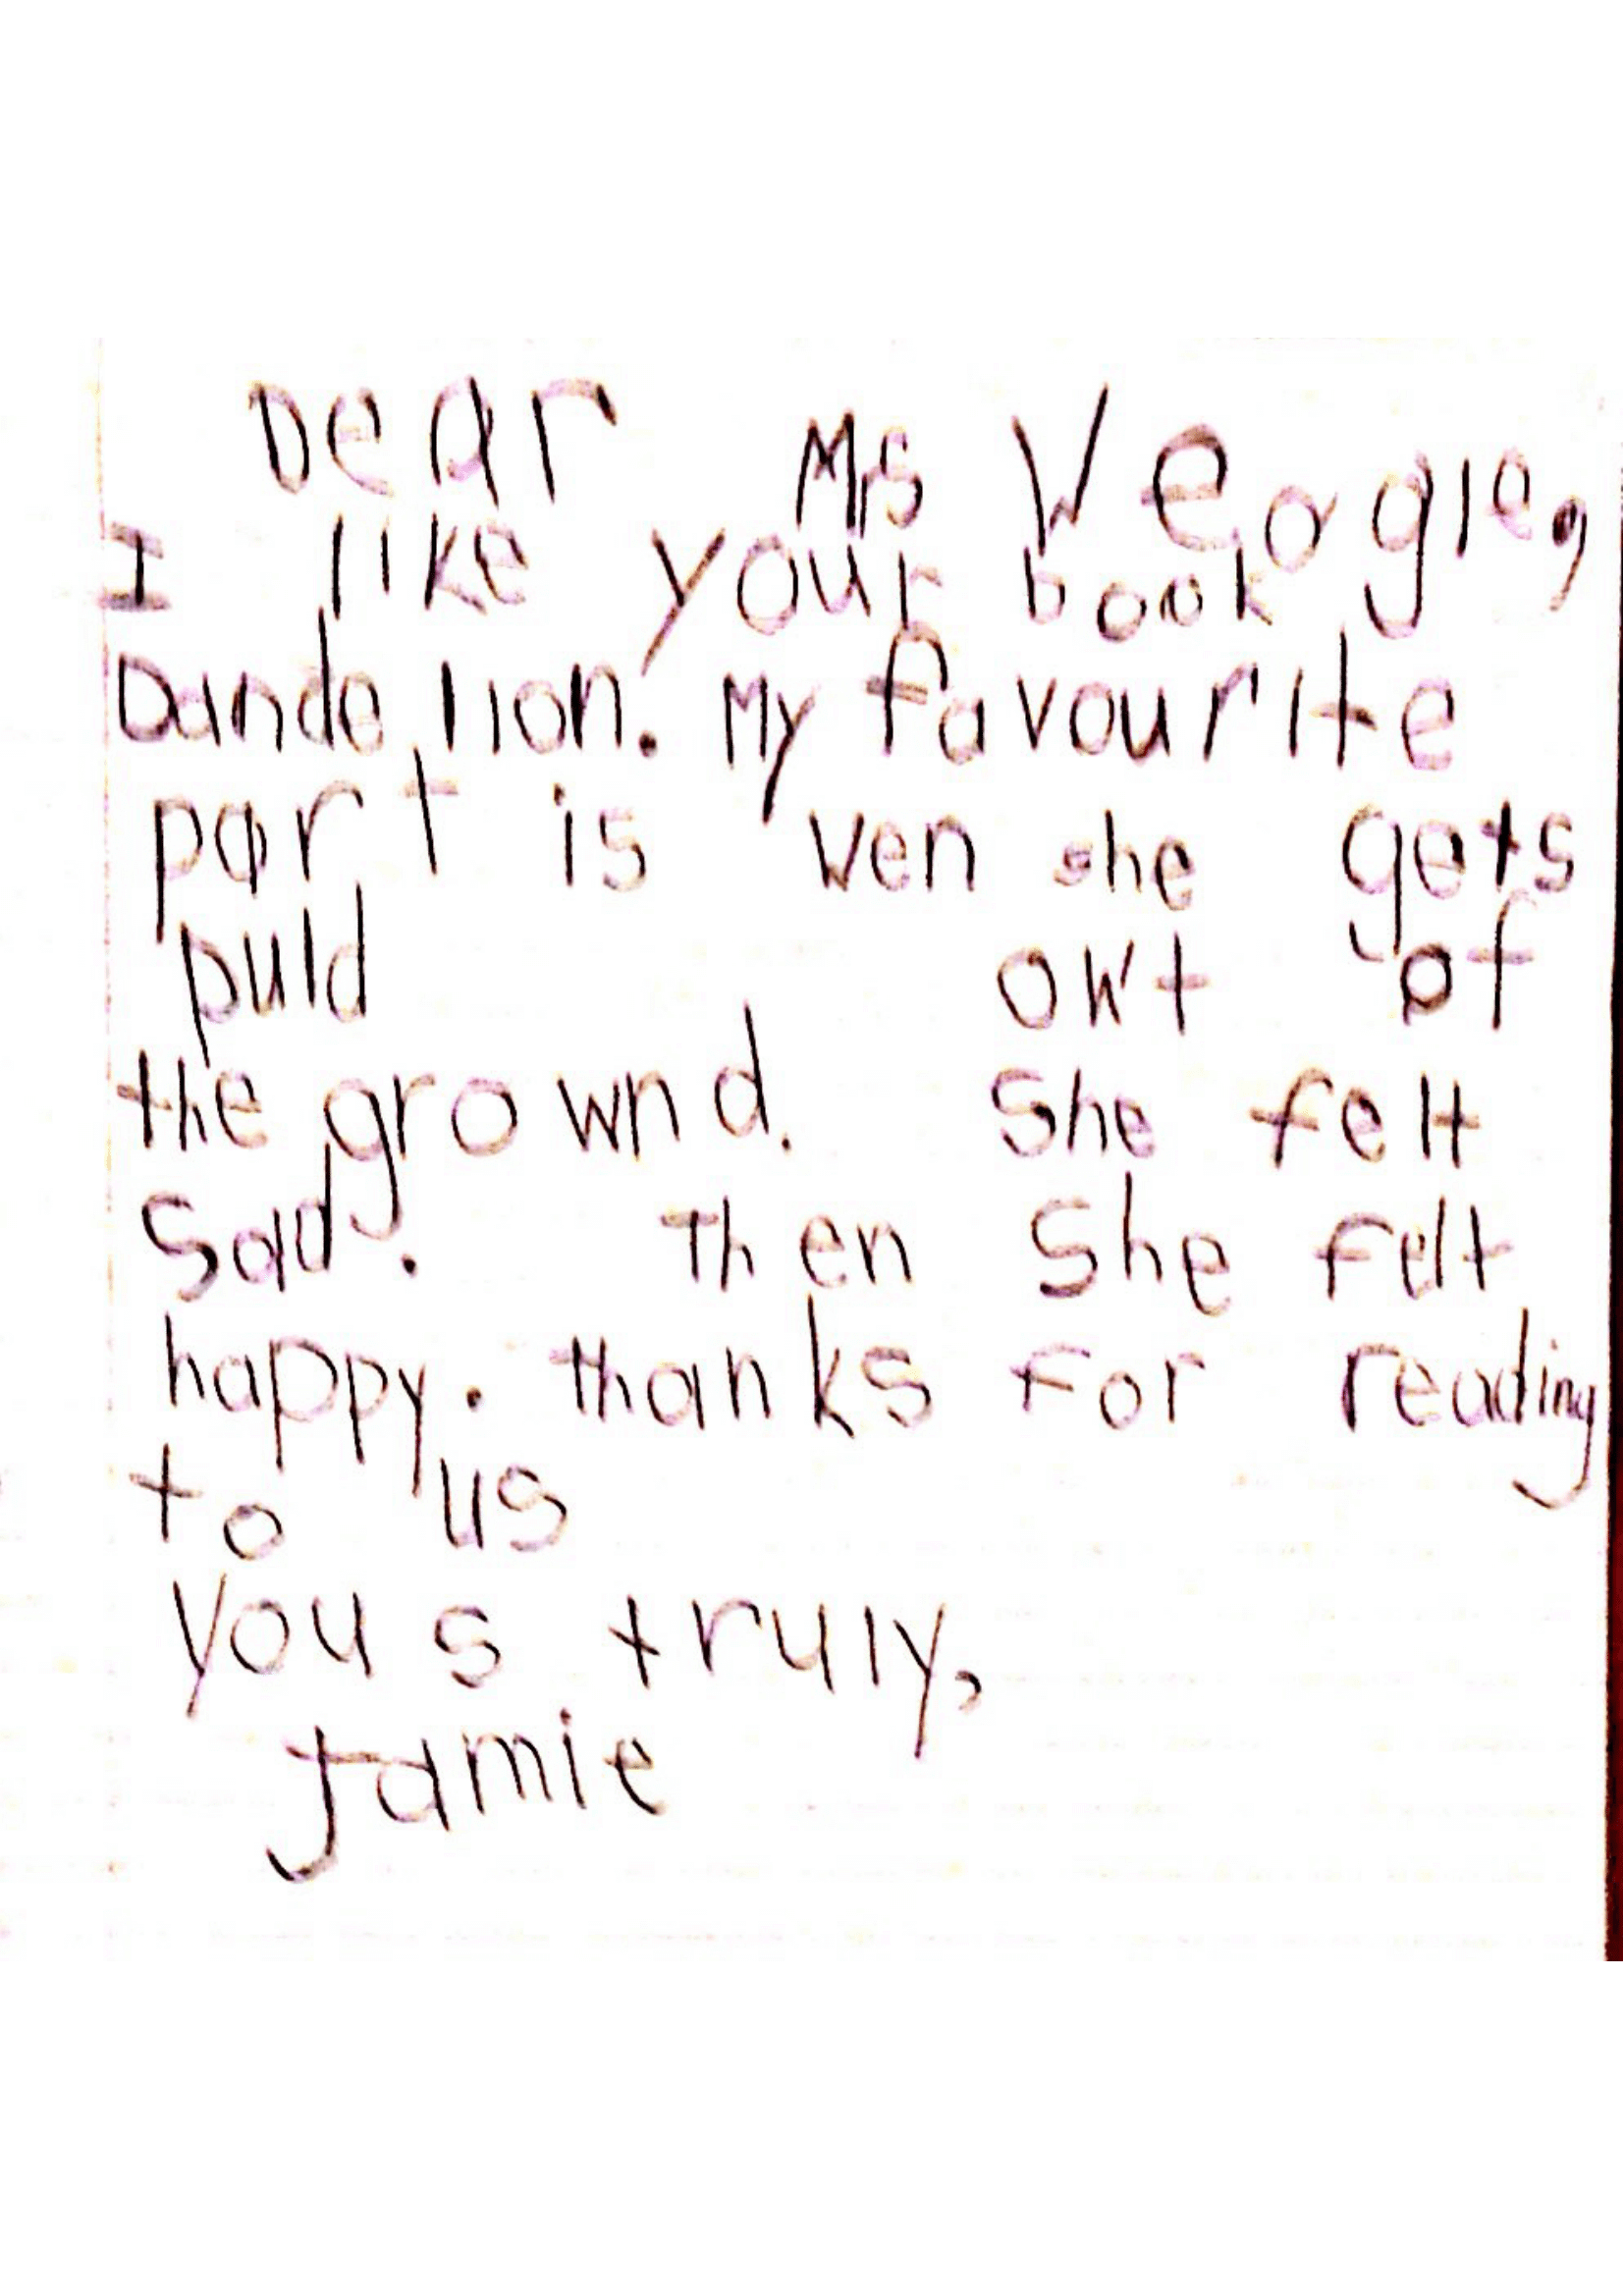 Dear Mrs Veogie,
I like your book
Dandelion. My favourite
part is wen she gets
puld owt of
the grownd. She felt
Sad. Then She felt
happy. thanks for reading
to us
Yous truly,
Jamie